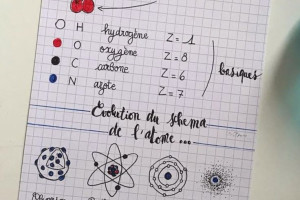 H hydrogène Z = 1
O oxygène Z = 8
C carbone Z = 6
N azote Z = 7
basiques
Évolution du schéma
de l'atome ...